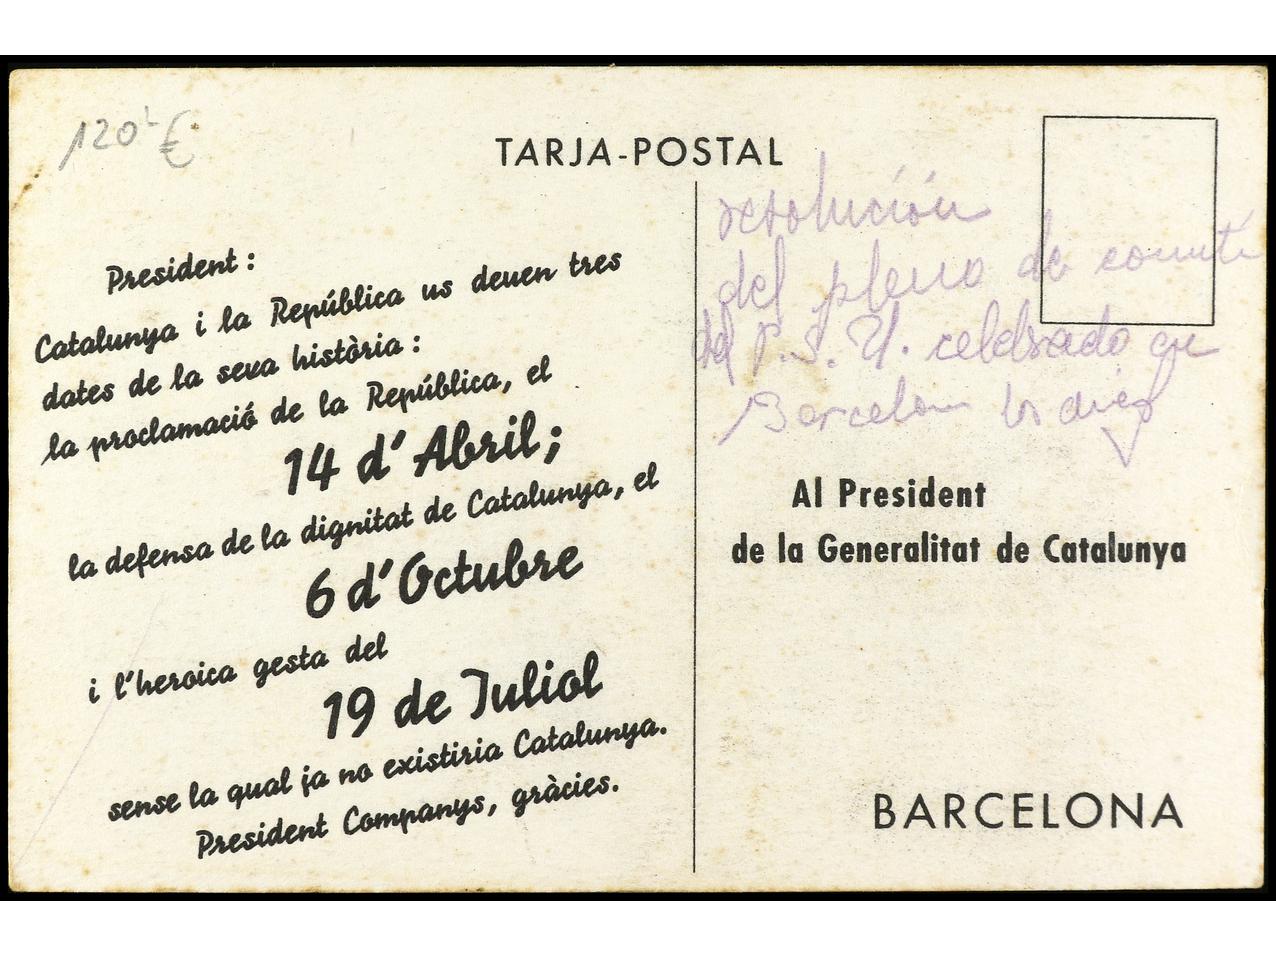 120 €
TARJA-POSTAL
President:
Catalunya i la República us deuen tres
dates de la seva història:
la proclamació de la República, el
14 d'Abril;
la defensa de la dignitat de Catalunya, el
6 d'Octubre
i l'heroica gesta del
19 de Juliol
sense la qual ja no existiria Catalunya.
President Companys, gràcies.
resolución
del pleno de comité
del P.S.U. celebrado en
Barcelona
Al President
de la Generalitat de Catalunya
BARCELONA